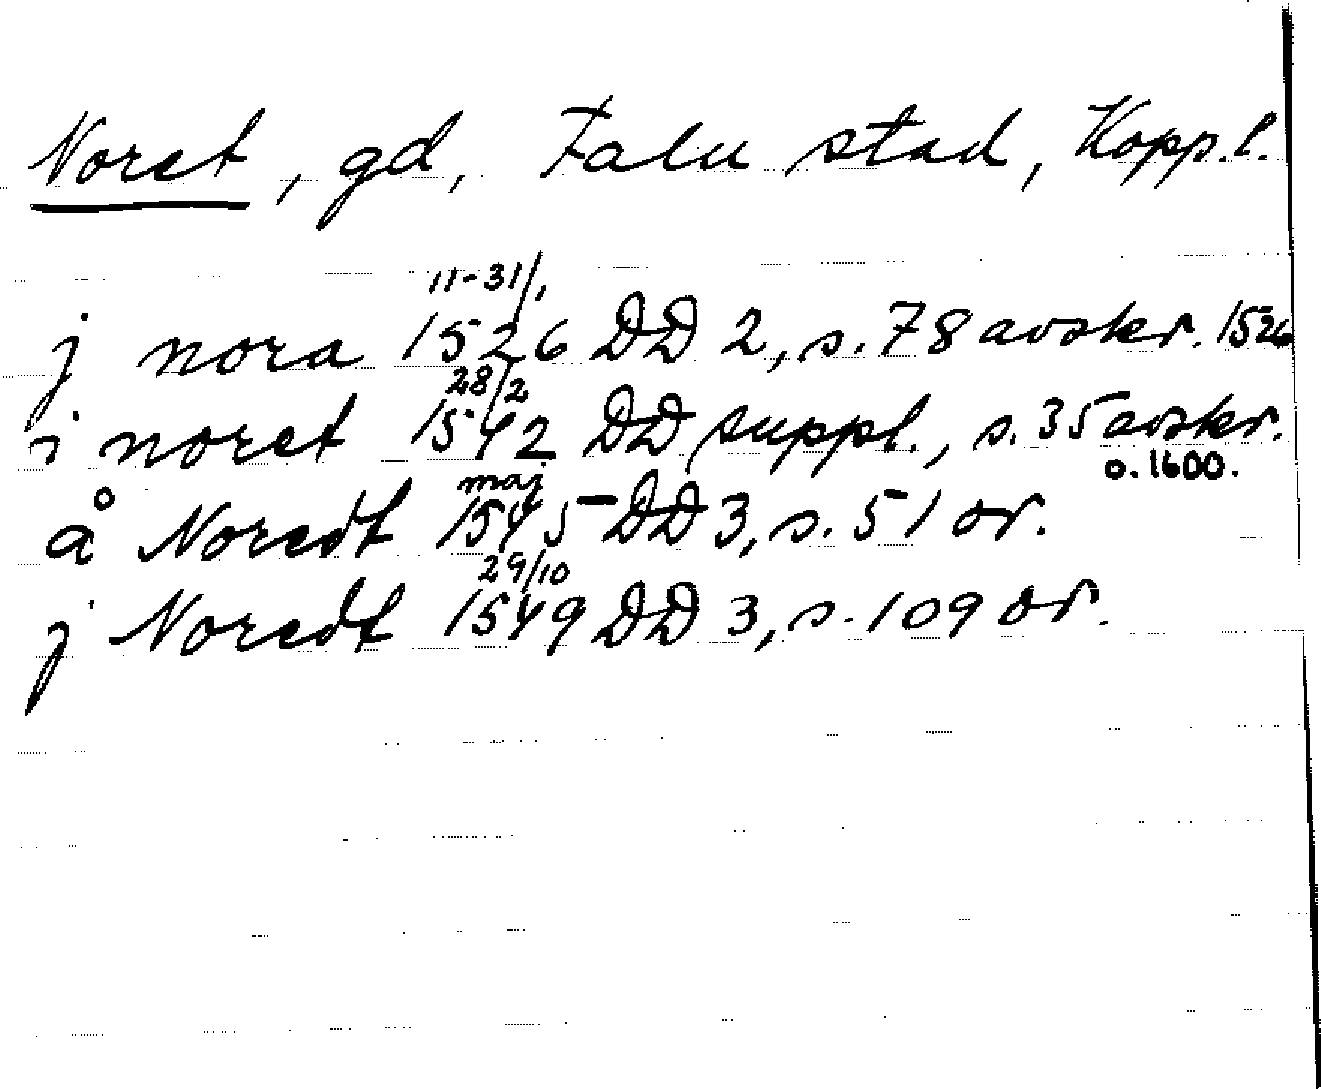 Noret, gd, Falu stad, Kopp.l.
11-31/1
j nora 1526 DD 2, s. 78 avskr. 1526
28/2
i noret 1542 DD suppl., s. 35 avskr.
o. 1600.
maj
å Noredt 1545 DD 3, s. 51 or.
29/10
j Noredt 1549 DD 3, s. 109 or.